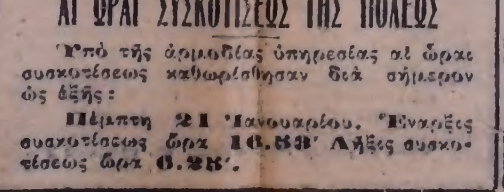 ΑΙ ΩΡΑΙ ΣΥΣΚΟΤΙΣΕΩΣ ΤΗΣ ΠΟΛΕΩΣ
Ὑπὸ τῆς ἁρμοδίας ὑπηρεσίας αἱ ὧραι
συσκοτίσεως καθωρίσθησαν διὰ σήμερον
ὡς ἑξῆς:
Πέμπτη 21 Ἰανουαρίου. Ἔναρξις
συσκοτίσεως ὥρα 16.53′ Λῆξις συσκο-
τίσεως ὥρα 6.28′.